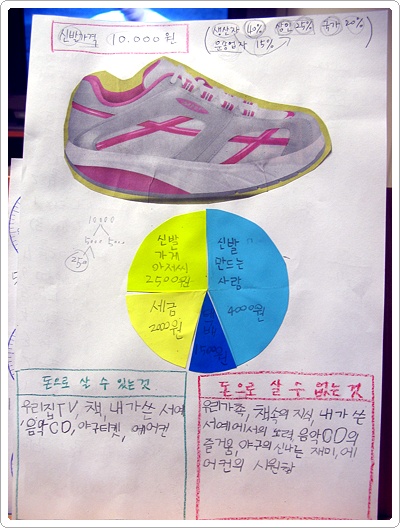 신발가격 10.000원
(생산자 40% 상인 25% 국가 20%
운송업자 15%)
10000
5000 5000
250
신발
가게
아저씨
2500원
신발
만드는
사람
4000원
세금
2000원
1500원
돈으로 살 수 있는 것
우리집 TV, 책, 내가 쓴 서예
음악CD, 야구티켓, 에어컨
돈으로 살 수 없는 것
우리가족, 책속의 지식, 내가 쓴
서예에서의 노력, 음악CD의
즐거움, 야구의 신나는 재미, 에
어컨의 시원함